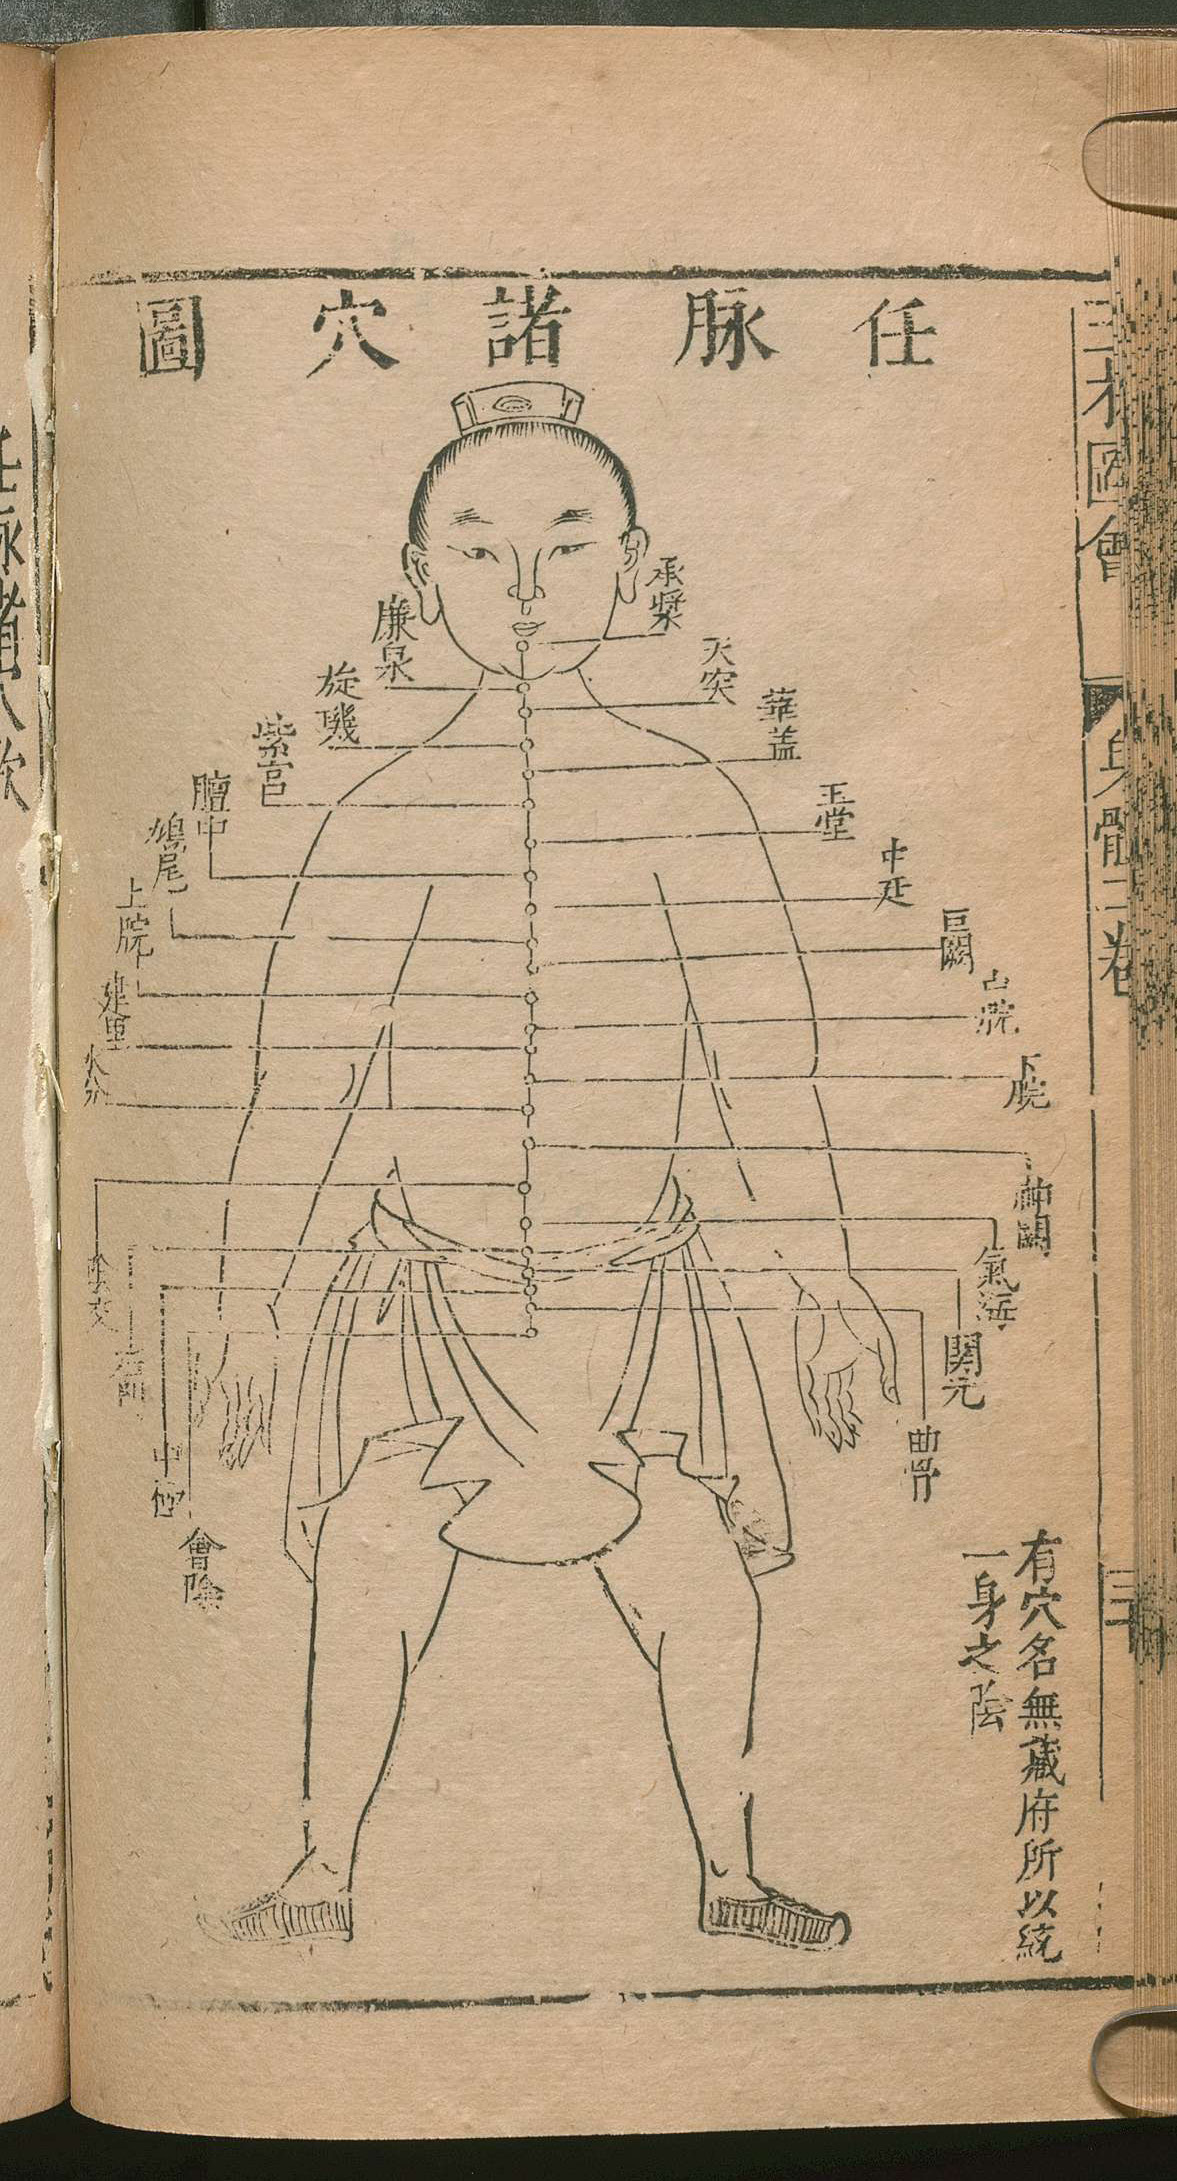 任脉諸穴圖
承漿
廉泉
天突
旋璣
華盖
紫宫
玉堂
膻中
中廷
鳩尾
巨闕
上脘
脘
建里
下脘
水分
神闕
陰交
氣海
關元
中極
曲骨
會陰
有穴名無藏府所以統
一身之陰
三才圖會
身體二卷
任脉諸穴歌